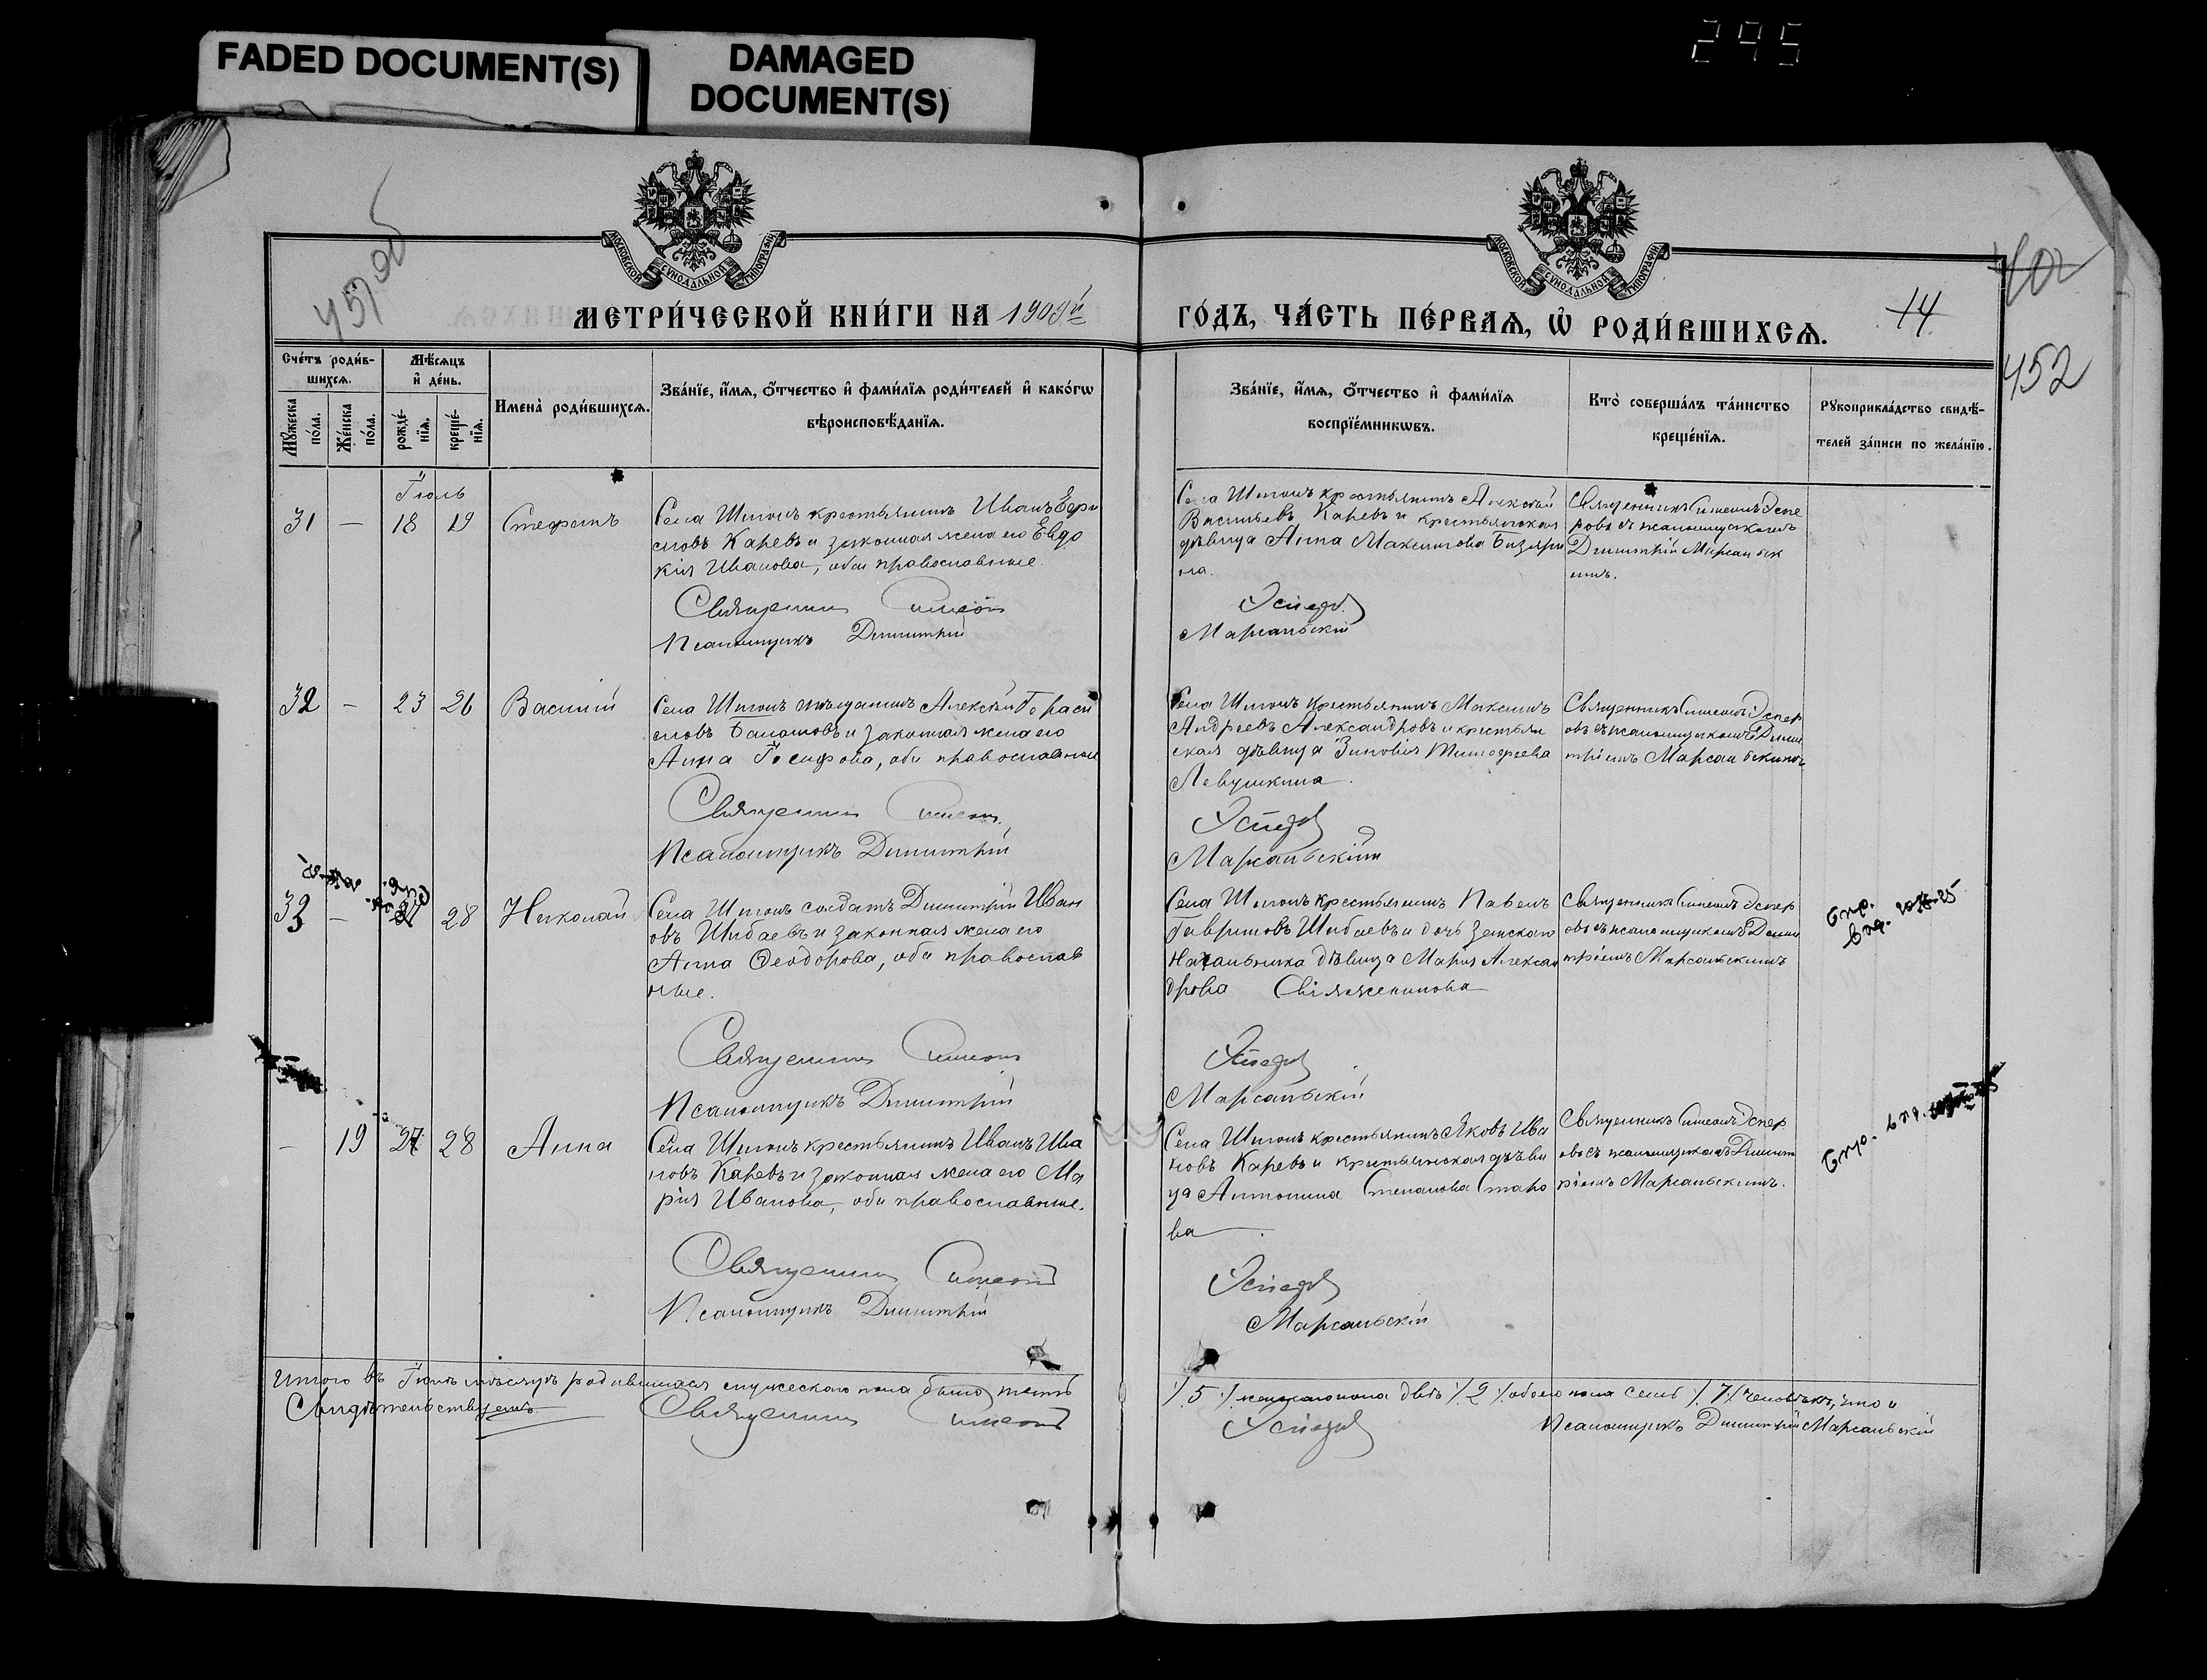 FADED DOCUMENT(S)
DAMAGED
DOCUMENT(S)
295
МОСКОВСКОЙ СѴНОДАЛЬНОЙ ТИПОГРАФІИ
МОСКОВСКОЙ СѴНОДАЛЬНОЙ ТИПОГРАФІИ
457об
402
452
МЕТРИ́ЧЕСКОЙ КНИ́ГИ НА 1909й
ГО́ДЪ, ЧА́СТЬ ПЕ́РВАѦ, Ѡ РОДИ́ВШИХСѦ.
14
Сче́тъ роди́в-
шихсѧ.
Мѣ́сѧцъ
и҆ де́нь.
Мꙋ́жеска
по́ла.
Же́нска
по́ла.
рожде́-
нїѧ.
креще́-
нїѧ.
Имена̀ роди́вшихсѧ.
Зва́нїе, и҆́мѧ, ѻ҆́тчество и҆ фами́лїѧ роди́телей и҆ како́гѡ
вѣроисповѣ́данїѧ.
Зва́нїе, и҆́мѧ, ѻ҆́тчество и҆ фами́лїѧ
воспрїе́мникѡвъ.
Кто̀ соверша́лъ та́инство
креще́нїѧ.
Рꙋкоприкла́дство свидѣ́-
телей за́писи по жела́нїю.
Іюль
31 — 18 19 Стефанъ
Села Шигонъ крестьянинъ Иванъ Ефи
мовъ Каревъ и законная жена его Евдо
кія Иванова, оба православные.
Священникъ Симеонъ
Псаломщикъ Димитрій
Села Шигонъ крестьянинъ Алексѣй
Васильевъ Каревъ и крестьянская
дѣвица Анна Максимова Бизяри
на.
Эсперовъ
Марсальскій
Священникъ Симеонъ Эспе
ровъ съ псаломщикомъ
Димитрій Марсальск
имъ.
32 — 23 26 Василій
Села Шигонъ мѣщанинъ Алексѣй Гераси
мовъ Балашовъ и законная жена его
Анна Іосифова, оба православные
Священникъ Симеонъ
Псаломщикъ Димитрій
Села Шигонъ крестьянинъ Максимъ
Андреевъ Александровъ и крестьян
ская дѣвица Зиновія Тимофеева
Левушкина.
Эсперовъ
Марсальскій
Священникъ Симеонъ Эспер
овъ съ псаломщикомъ Дими
тріемъ Марсальскимъ
33 — 27 28 Николай
Села Шигонъ солдатъ Димитрій Иван
овъ Шибаевъ и законная жена его
Анна Ѳеодорова, оба православ
ные.
Священникъ Симеонъ
Псаломщикъ Димитрій
Села Шигонъ крестьянинъ Павелъ
Гавриловъ Шибаевъ и дочь земскаго
Начальника дѣвица Марія Алексан
дрова
Эсперовъ
Марсальскій
Священникъ Симеонъ Эспер
овъ съ псаломщикомъ Дими
тріемъ Марсальскимъ
— 19 27 28 Анна
Села Шигонъ крестьянинъ Иванъ Ива
новъ Каревъ и законная жена его Ма
рія Иванова, оба православные.
Священникъ Симеонъ
Псаломщикъ Димитрій
Села Шигонъ крестьянинъ Яковъ Ива
новъ Каревъ и крестьянская дѣви
ца Антонина Степанова Старо
ва
Эсперовъ
Марсальскій
Священникъ Симеонъ Эспер
овъ съ псаломщикомъ Димит
ріемъ Марсальскимъ.
Итого въ Іюлѣ мѣсяцѣ родившихся мужескаго пола было пять
/.5./ женскаго пола двѣ /.2./ обоего пола семь /.7./ человѣкъ, что и
Свидѣтельствуемъ
Священникъ Симеонъ
Эсперовъ
Псаломщикъ Димитрій Марсальскій